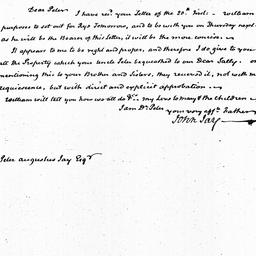 Dear Peter
I have recd. your Letter of the 20th. inst: — William
purposes to set out for Rye Tomorrow, and to be with you on Thursday next.
as he will be the Bearer of this letter, it will be the more concise. —
It appears to me to be right and proper, and therefore I do give to you
all the Property which your uncle Peter bequeathed to our Dear Sally. on
mentioning this to your Brother and Sisters, they received it, not with mere
acquiescence, but with direct and explicit approbation. —
William will tell you how we all do &c. my Love to mary & the children —
I am Dr. Peter
your very affte. Father
John Jay —
Peter augustus Jay Esqr.